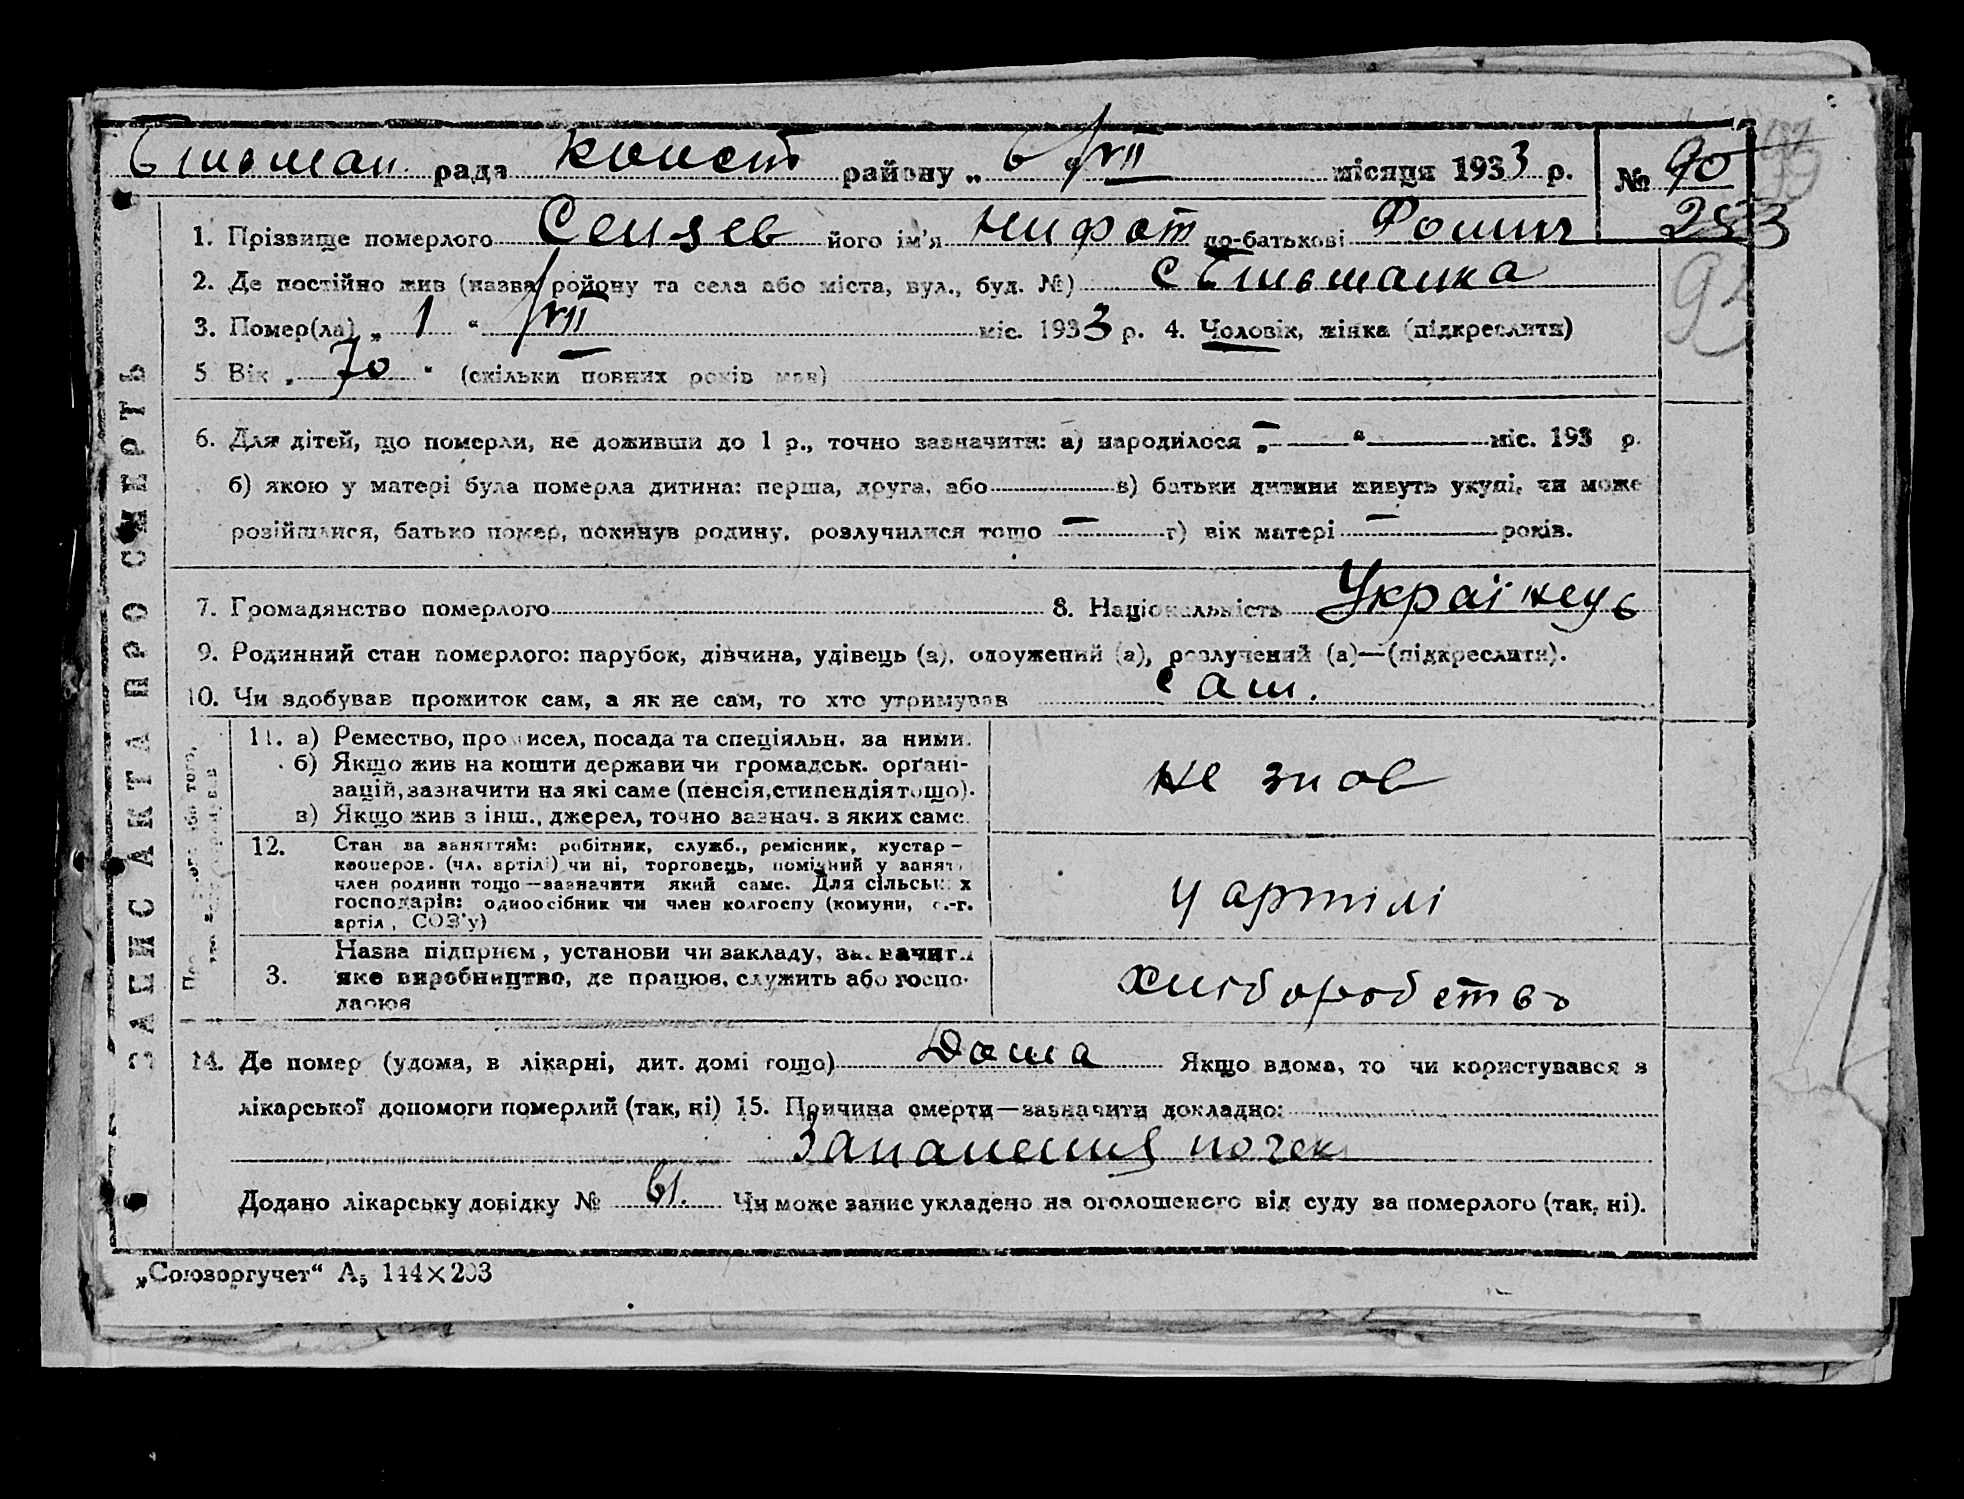 рада Конст району „ 6 " VII місяця 1933 р. № 90
253
1. Прізвище померлого його ім'я Нифот по-батькові Фомич
2. Де постійно жив (назва району та села або міста, вул., буд. №) с Вільшанка
3. Помер(ла) „ 1 " VII міс. 1933 р. 4. Чоловік, жінка (підкреслити)
5. Вік „ 70 " (скільки повних років мав)
6. Для дітей, що померли, не доживши до 1 р., точно зазначити: а) народилося „ — " — міс. 193 р.
б) якою у матері була померла дитина: перша, друга, або в) батьки дитини живуть укупі, чи може
розійшлися, батько помер, покинув родину, розлучилися тощо — г) вік матері — років.
7. Громадянство померлого 8. Національність Українець
9. Родинний стан померлого: парубок, дівчина, удівець (а), одружений (а), розлучений (а)—(підкреслити).
10. Чи здобував прожиток сам, а як не сам, то хто утримував сам.
11. а) Ремество, промисел, посада та спеціяльн. за ними.
б) Якщо жив на кошти держави чи громадськ. орґані-
зацій, зазначити на які саме (пенсія, стипендія тощо).
в) Якщо жив з інш., джерел, точно зазнач. з яких саме.
не знов
12. Стан за заняттям: робітник, служб., ремісник, кустар —
кооперов. (чл. артілі) чи ні, торговець, помічний у занят.
член родини тощо — зазначити який саме. Для сільськ х
господарів: одноосібник чи член колгоспу (комуни, с.-г.
артіл, СОЗ'у)
у артілі
3. Назва підприєм, установи чи закладу, зазначити
яке виробництво, де працює, служить або госпо-
дарює
хліборобство
14. Де помер (удома, в лікарні, дит. домі тощо) Дома Якщо вдома, то чи користувався з
лікарської допомоги померлий (так, ні) 15. Причина смерти—зазначити докладно:
Запаления почек
Додано лікарську довідку № 61. Чи може запис укладено на оголошеного від суду за померлого (так, ні).
„Союзоргучет“ А5 144×203
ЗАПИС АКТА ПРО СМЕРТЬ